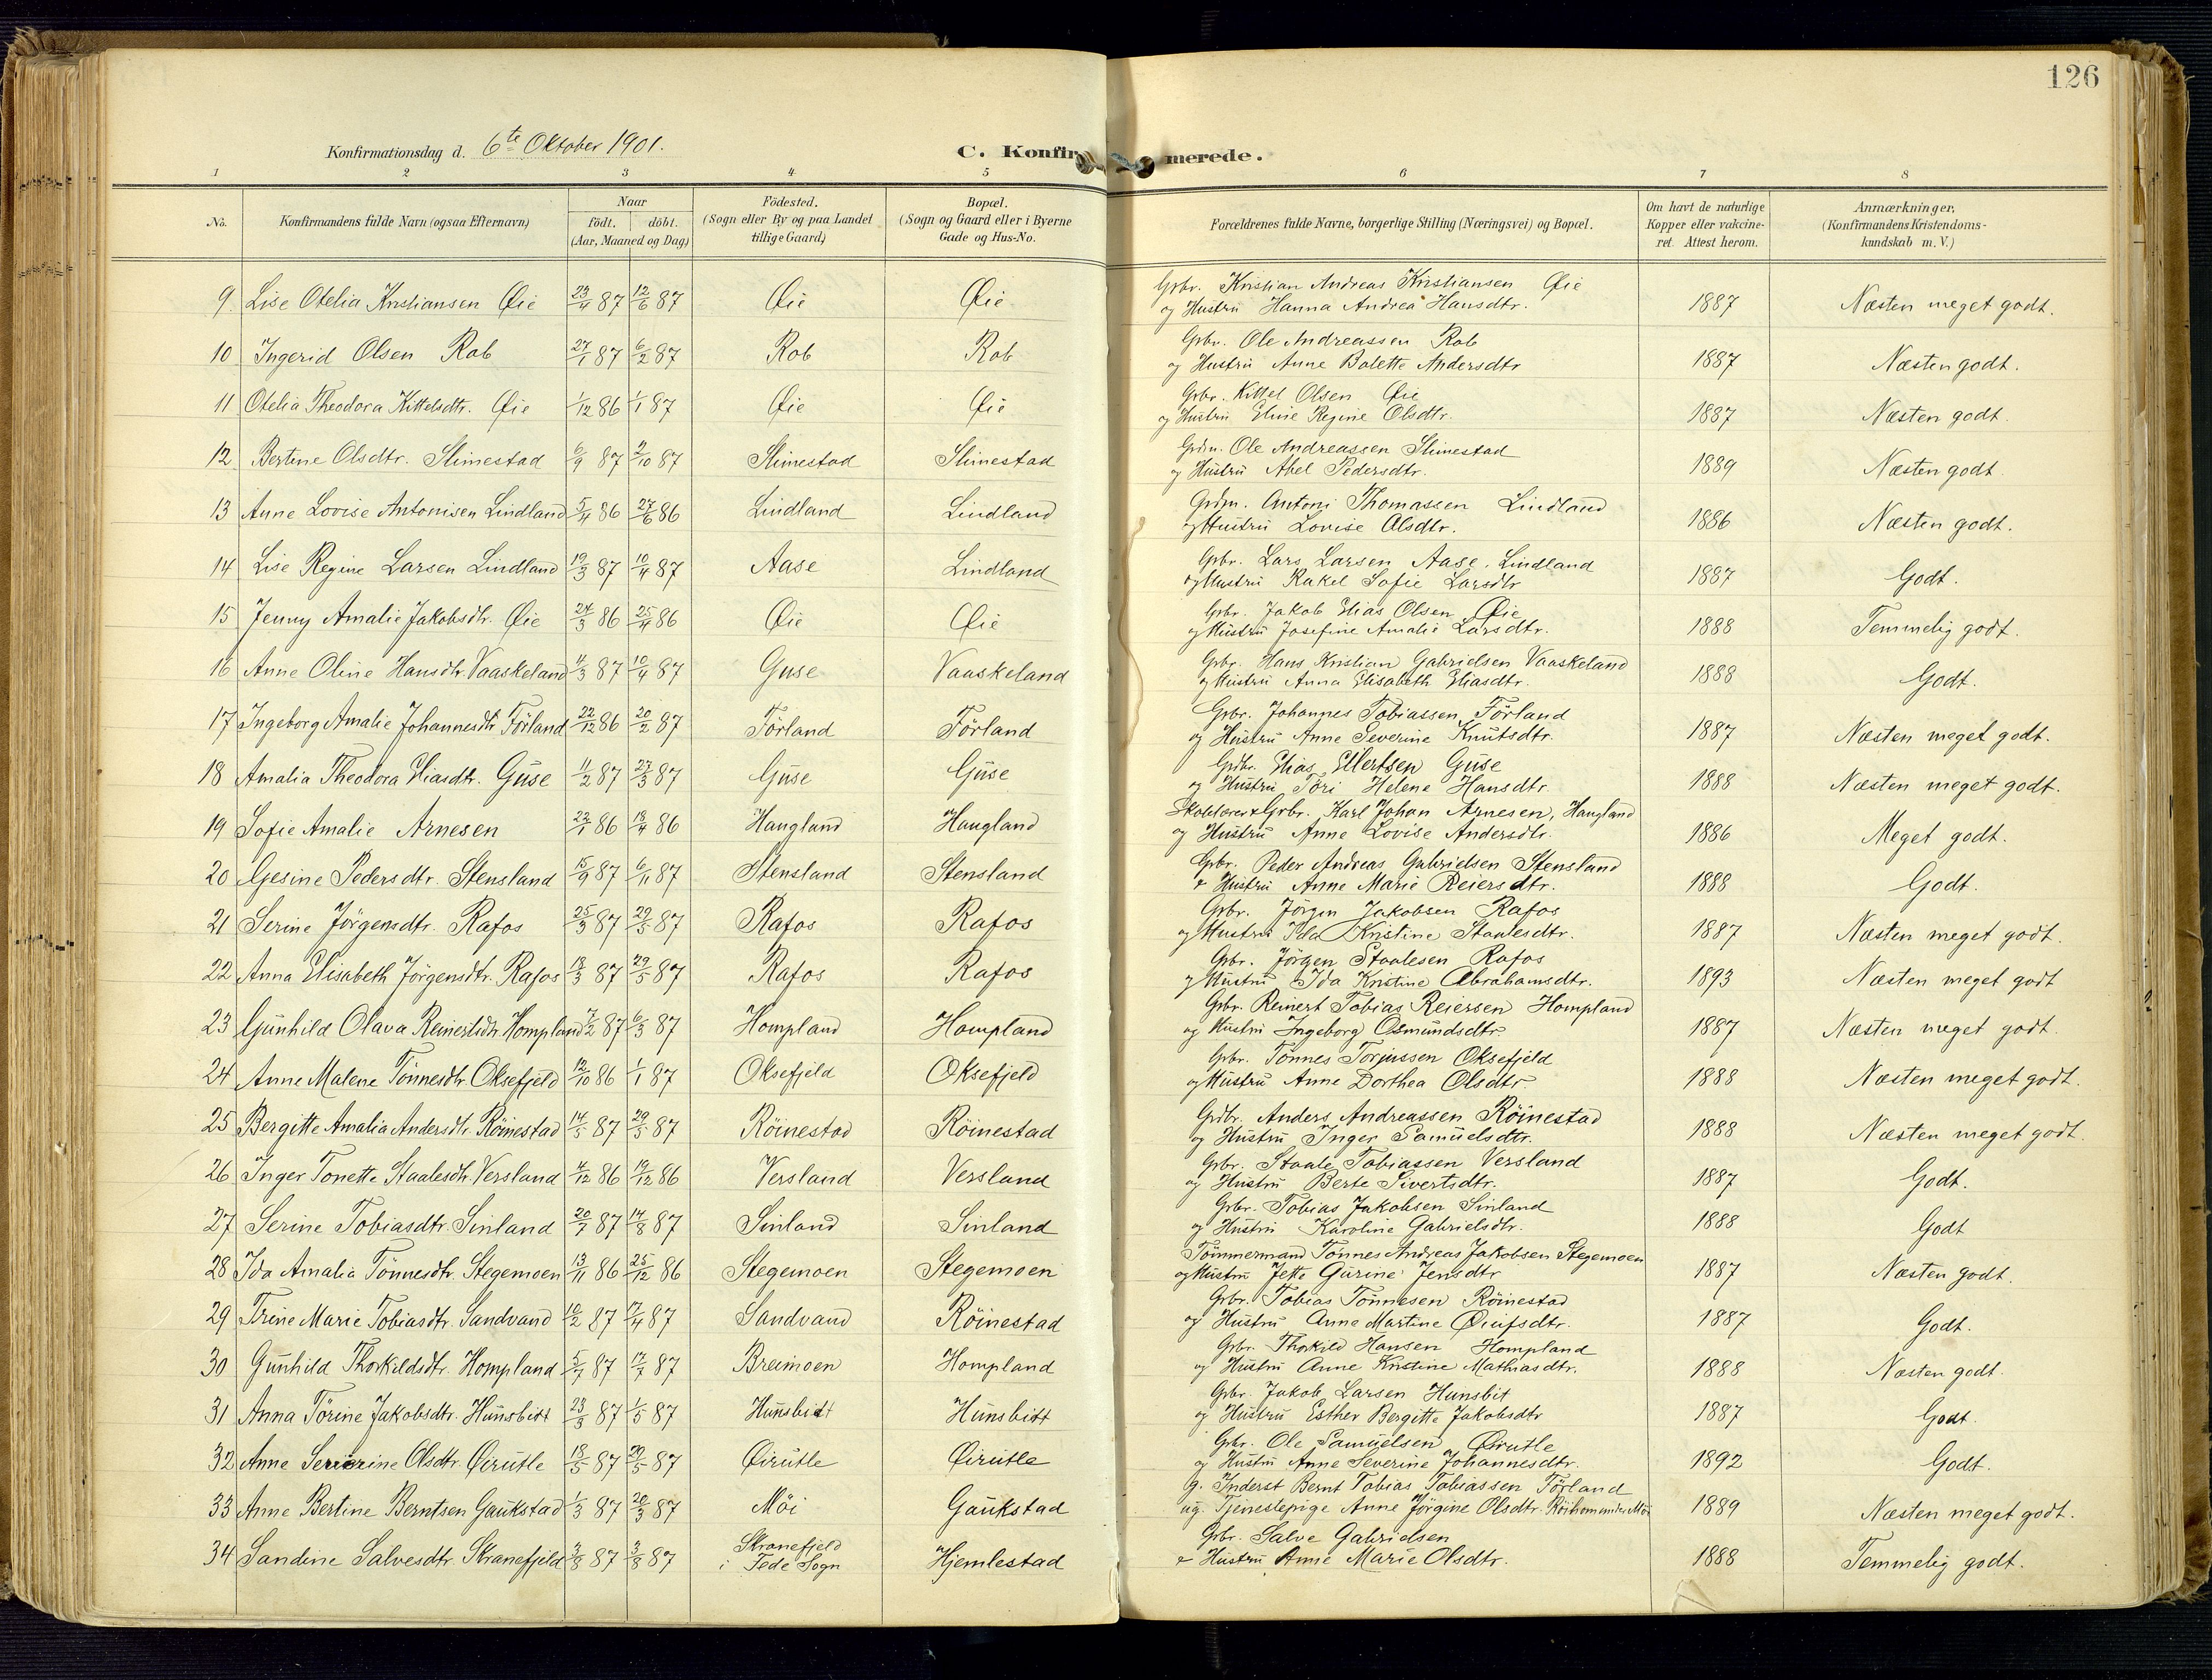 126
Konfirmationsdag d. 6te Oktober 1901.
C. Konfirmerede.
1 2 3 4 5 6 7 8
No. Konfirmandens fulde Navn (ogsaa Efternavn) Naar födt. döbt. (Aar, Maaned og Dag) Födested. (Sogn eller By og paa Landet tillige Gaard) Bopæl. (Sogn og Gaard eller i Byerne Gade og Hus-No. Forældrenes fulde Navne, borgerlige Stilling (Næringsvei) og Bopæl. Om havt de naturlige Kopper eller vakcineret. Attest herom. Anmærkninger, (Konfirmandens Kristendomskundskab m. V.)
9. Lise Otelia Kristiansen Øie 23/4 87 12/6 87 Øie Øie Gbr. Kristian Andreas Kristiansen Øie 1887 Næsten meget godt.
og Hustru Hanna Andrea Hansdtr.
10 Ingerid Olsen Rob 27/1 87 6/2 87 Rob Rob Gbr. Ole Andreassen Rob 1887 Næsten godt.
og Hustru Anne Bolette Andersdtr
11 Otelia Theodora Kittelsdtr. Øie 1/12 86 1/1 87 Øie Øie Gbr. Kittel Olsen Øie 1887 Næsten godt.
og Hustru Eline Regine Olsdtr.
12 Bertine Olsdtr. Slimestad 6/9 87 2/10 87 Slimestad Slimestad Grdm. Ole Andreassen Slimestad 1889 Næsten godt
og Hustru Abel Pedersdtr.
13 Anne Lovise Antonisen Lindland 5/4 86 27/6 86 Lindland Lindland Grdm. Antoni Thomassen Lindland 1886 Næsten godt.
og Hustru Lovise Olsdtr.
14 Lise Regine Larsen Lindland 19/3 87 10/4 87 Aase Lindland Gbr. Lars Larsen Aase, Lindland 1887 Godt.
og Hustru Rakel Sofie Larsdtr
15 Jenny Amalie Jakobsdtr. Øie 24/3 86 25/4 86 Øie Øie Gbr. Jakob Elias Olsen Øie 1888 Temmelig godt.
og Hustru Josefine Amalie Larsdtr.
16 Anne Oline Hansdtr. Vaaskeland 11/3 87 10/4 87 Guse Vaaskeland Gbr. Hans Kristian Gabrielsen Vaaskeland 1888 Godt.
og Hustru Anna Elisabeth Eliasdtr.
17 Ingeborg Amalie Johannesdtr Förland 22/12 86 20/2 87 Förland Förland Gbr. Johannes Tobiassen Förland 1887 Næsten meget godt.
og Hustru Anne Severine Knutsdtr.
18 Amalia Theodora Eliasdtr. Guse 11/2 87 27/3 87 Guse Guse Grdbr. Elias Ellertsen Guse 1888 Næsten meget godt.
og Hustru Töri Helene Hansdtr.
19 Sofie Amalie Arnesen 22/1 86 18/4 86 Haugland Haugland Skolelærer & Gbr. Karl Johan Arnesen, Haugland 1886 Meget godt.
og Hustru Anne Lovise Andersdtr.
20 Gesine Pedersdtr. Stensland 15/9 87 6/11 87 Stensland Stensland Gbr. Peder Andreas Gabrielsen Stensland 1888 Godt.
& Hustru Anne Marie Reiersdtr.
21 Serine Jörgensdtr. Rafos 25/3 87 29/5 87 Rafos Rafos Gbr. Jörgen Jakobsen Rafos 1887 Næsten meget godt.
og Hustru Ida Kristine Staalesdtr.
22 Anna Elisabeth Jörgensdtr. Rafos 18/3 87 29/5 87 Rafos Rafos Gbr. Jörgen Staalesen Rafos 1893 Næsten meget godt
og Hustru Ida Kristine Abrahamsdtr.
23 Gunhild Olava Reinertsdtr. Hompland 7/2 87 6/3 87 Hompland Hompland Gbr. Reinert Tobias Reiersen Hompland 1887 Næsten meget godt.
og Hustru Ingeborg Osmundsdtr.
24 Anne Malene Tönnesdtr. Oksefjeld 12/10 86 1/1 87 Oksefjeld Oksefjeld Gbr. Tönnes Torjussen Oksefjeld 1888 Næsten meget godt.
og Hustru Anne Dorthea Olsdtr
25 Bergitte Amalia Andersdtr. Röinestad 14/5 87 29/5 87 Röinestad Röinestad Grdbr. Anders Andreassen Röinestad 1888 Næsten meget godt.
og Hustru Inger Samuelsdtr.
26 Inger Tonette Staalesdtr. Versland 4/12 86 19/12 86 Versland Versland Gbr. Staale Tobiassen Versland 1887 Godt.
og Hustru Berte Sivertsdtr.
27 Serine Tobiasdtr. Sinland 20/7 87 14/8 87 Sinland Sinland Gbr. Tobias Jakobsen Sinland 1888 Godt
og Hustru Karoline Gabrielsdtr.
28 Ida Amalia Tönnesdtr. Stegemoen 13/11 86 25/12 86 Stegemoen Stegemoen Tömmermand Tönnes Andreas Jakobsen Stegemoen 1887 Næsten godt.
og Hustru Jette Gurine Jensdtr
29 Trine Marie Tobiasdtr. Sandvand 10/2 87 17/4 87 Sandvand Röinestad Gbr. Tobias Tönnesen Röinestad 1887 Godt.
og Hustru Anne Martine Øiufsdtr.
30 Gunhild Thorkildsdtr. Hompland 5/7 87 17/7 87 Breimoen Hompland Gbr. Thorkild Hansen Hompland 1888 Næsten godt.
og Hustru Anne Kristine Mathiasdtr.
31 Anna Törine Jakobsdtr. Hunsbitt 23/3 87 1/5 87 Hunsbitt Hunsbitt Gbr. Jakob Larsen Hunsbit 1887 Godt.
og Hustru Esther Bergitte Jakobsdtr
32 Anne Severine Olsdtr. Øirutle 18/5 87 29/5 87 Øirutle Øirutle Gbr. Ole Samuelsen Øirutle 1892 Godt.
og Hustru Anne Severine Johannesdtr.
33 Anne Bertine Berntsen Gaukstad 1/3 87 20/3 87 Möi Gaukstad G. Inderst Bernt Tobias Tobiassen Förland 1889 Næsten meget godt.
ug. Tjenestepige Anne Jörgine Olsdtr. under Möi
34 Sandine Salvesdtr. Skranefjeld 87 87 Skranefjeld i Fede Sogn Hjemlestad Gbr. Salve Gabrielsen 1888 Temmelig godt.
& Hustru Anne Marie Olsdtr.